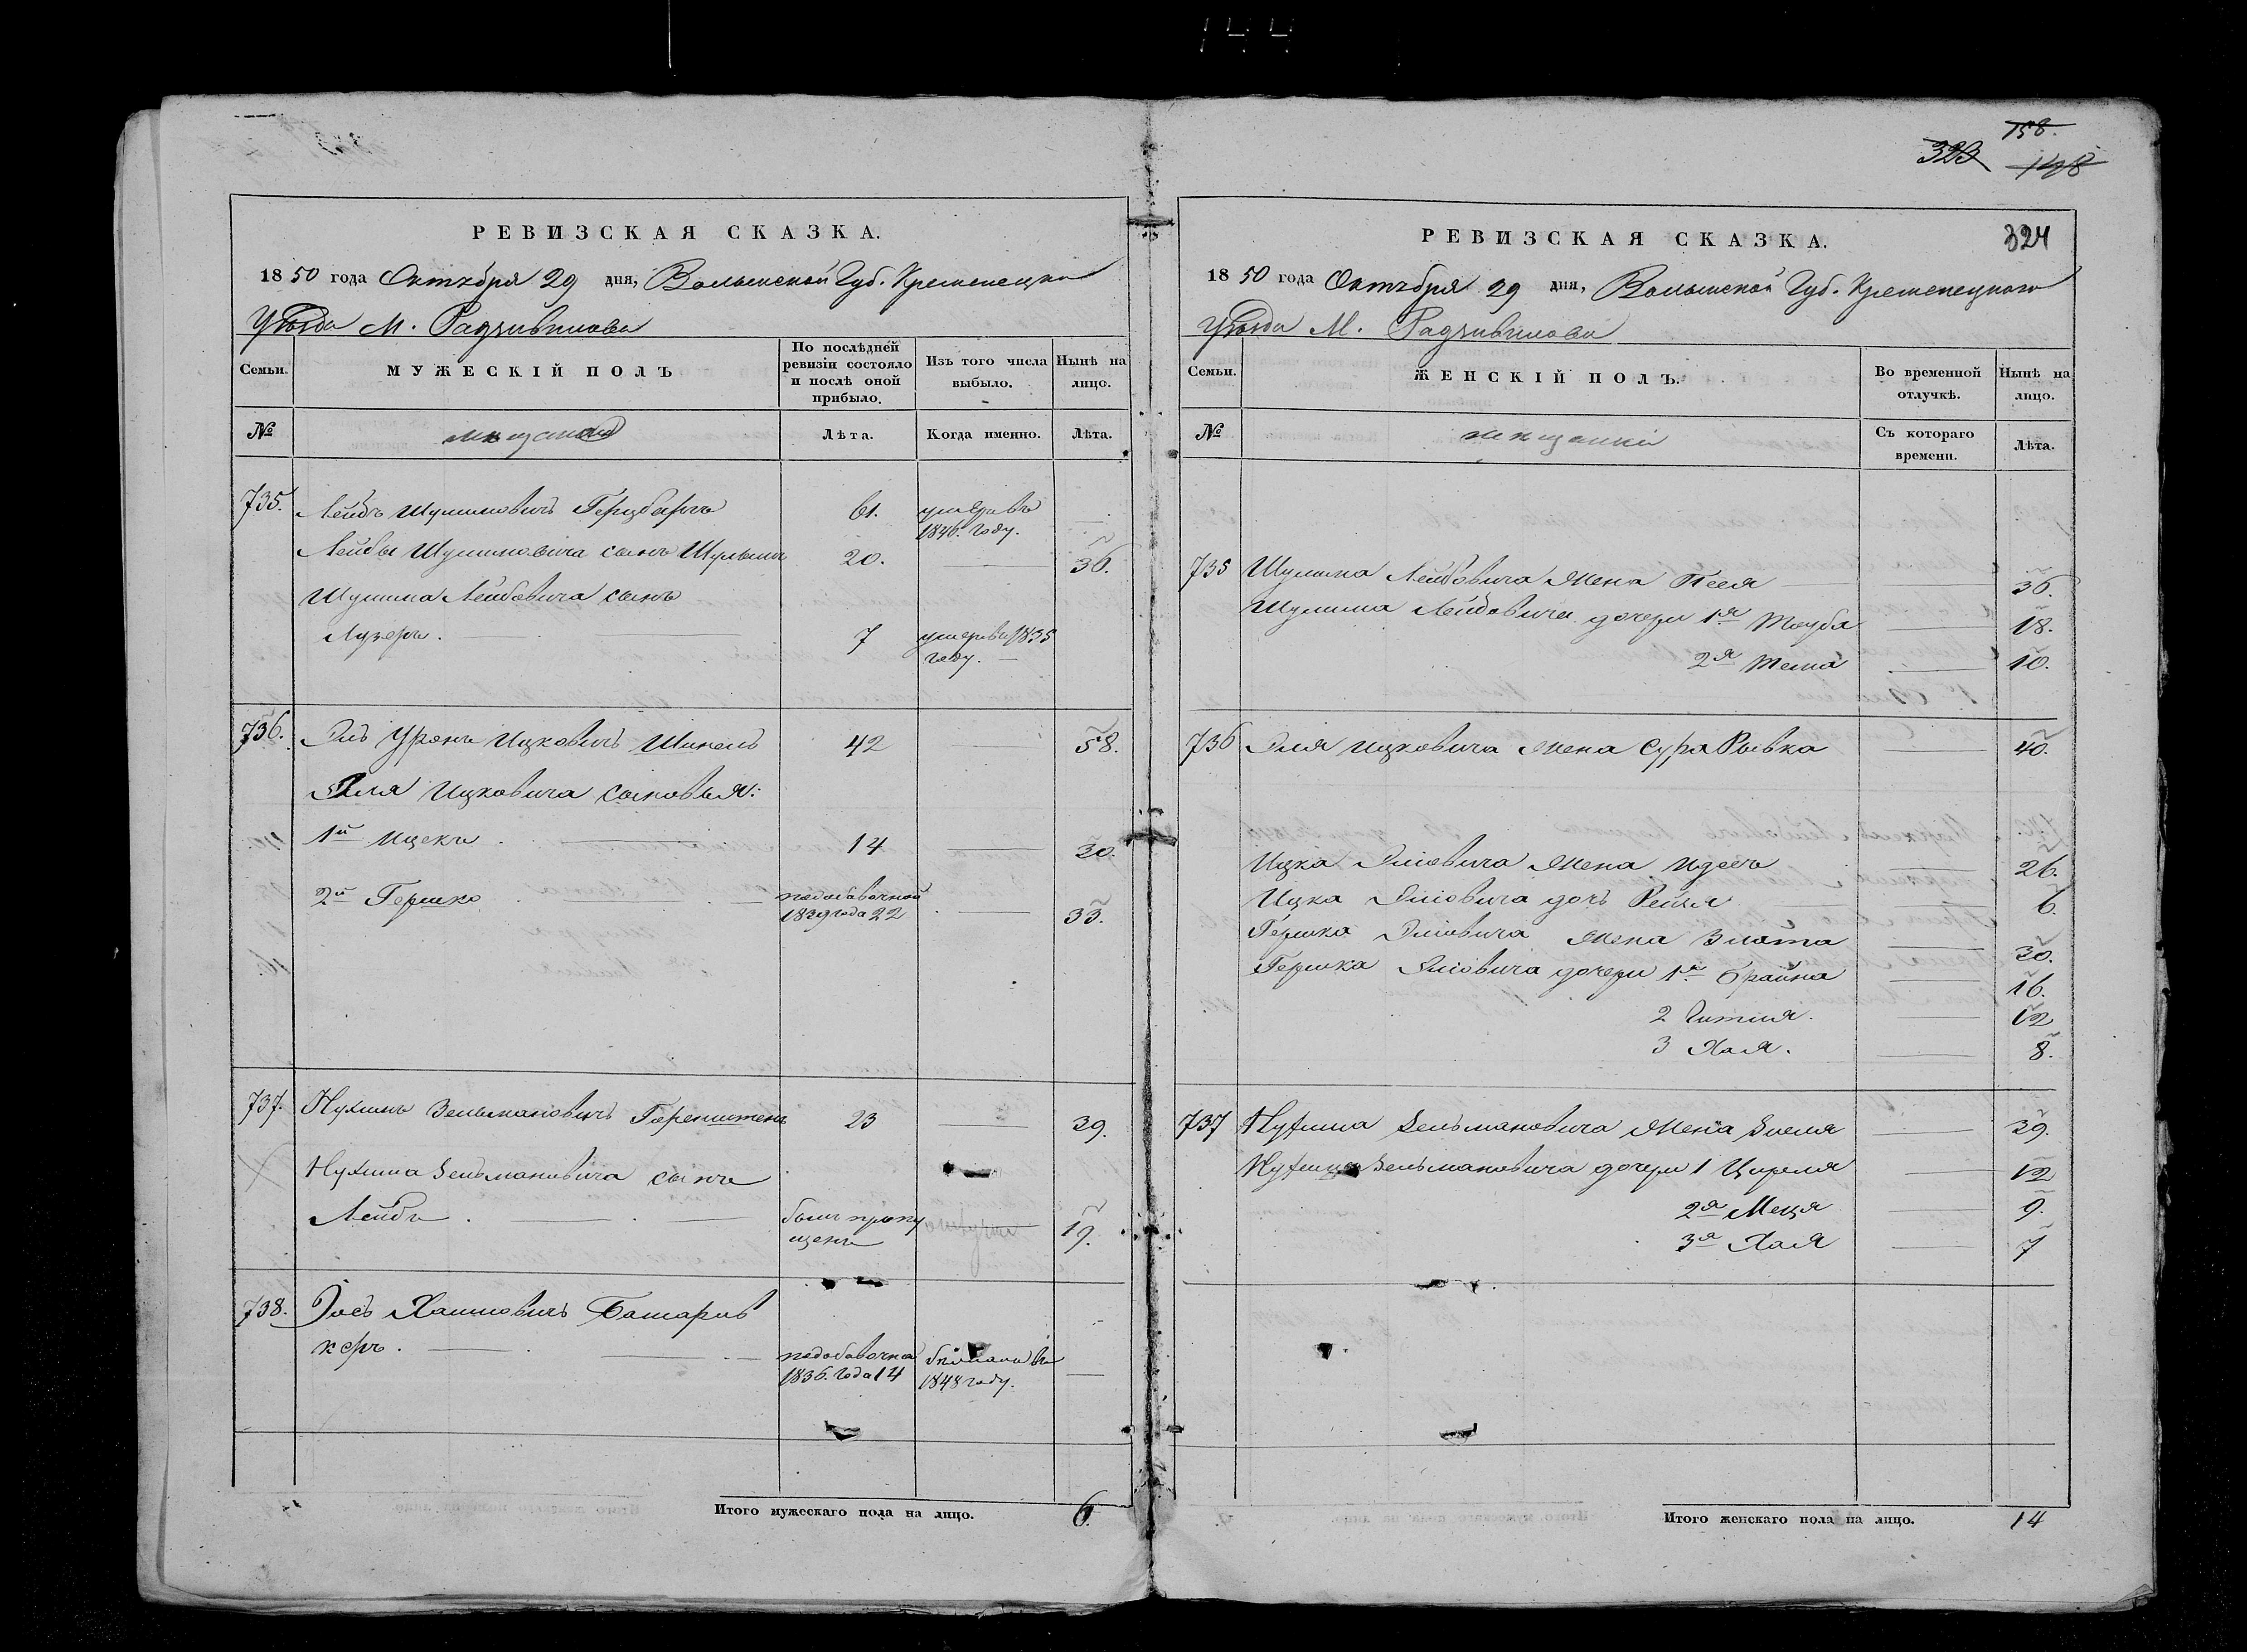 144
158.
323 148
РЕВИЗСКАЯ СКАЗКА.
1850 года Октября 29 дня, Волынской Губ. Кременецкаго
Уѣзда М. Радзивилова
Семьи.
МУЖЕСКІЙ ПОЛЪ
По послѣдней ревизіи состояло и послѣ оной прибыло.
Изъ того числа выбыло.
Нынѣ на лицо.
№
мѣщане
Лѣта.
Когда именно.
Лѣта.
735. Лейбъ Шулимовичъ Герцбергъ 61. умеръ въ 1840. году. —
Лейбы Шулимовича сынъ Шулимъ 20. — 36.
Шулима Лейбовича сынъ
Лузеръ. — 7 умеръ въ 1835 году. —
736. Эль Уронъ Ицковичъ Шинель 42 — 58.
Эля Ицковича сыновья:
1й Ицекъ — 14 — 30.
2й Гершко — по добавочной 1839 года 22 — 33.
737. Нухимъ Зельмановичъ Горенштейнъ 23 — 39.
Нухима Зельмановича сынъ
Лейбъ — былъ пропущенъ 19.
738. Іось Хаимовичъ
керъ. — по добавочной 1836. года 14 1848 году. —
Итого мужескаго пола на лицо. 6.
РЕВИЗСКАЯ СКАЗКА. 324
1850 года Октября 29 дня, Волынской Губ. Кременецкаго
Уѣзда М. Радзивилова
Семьи.
ЖЕНСКІЙ ПОЛЪ.
Во временной отлучкѣ.
Нынѣ на лицо.
№
мѣщанки
Съ котораго времени.
Лѣта.
735 Шулима Лейбовича жена Песя — 36.
Шулима Лейбовича дочери 1я Тауба — 18.
2я Тема — 10.
736 Эля Ицковича жена Сура Рывка — 40.
Ицка Эліовича жена Идесъ — 26.
Ицка Эліовича дочь Рейзя — 6.
Гершка Эліовича жена Злота — 30.
Гершка Эліовича дочери 1я Брайна — 16.
2 Гитля. — 12
3 Хая. — 8.
737 Нухима Зельмановича жена Зисля — 39.
Нухима Зельмановича дочери 1 Цирля — 12
2я Меця — 9.
3я Хая — 7
Итого женскаго пола на лицо. 14